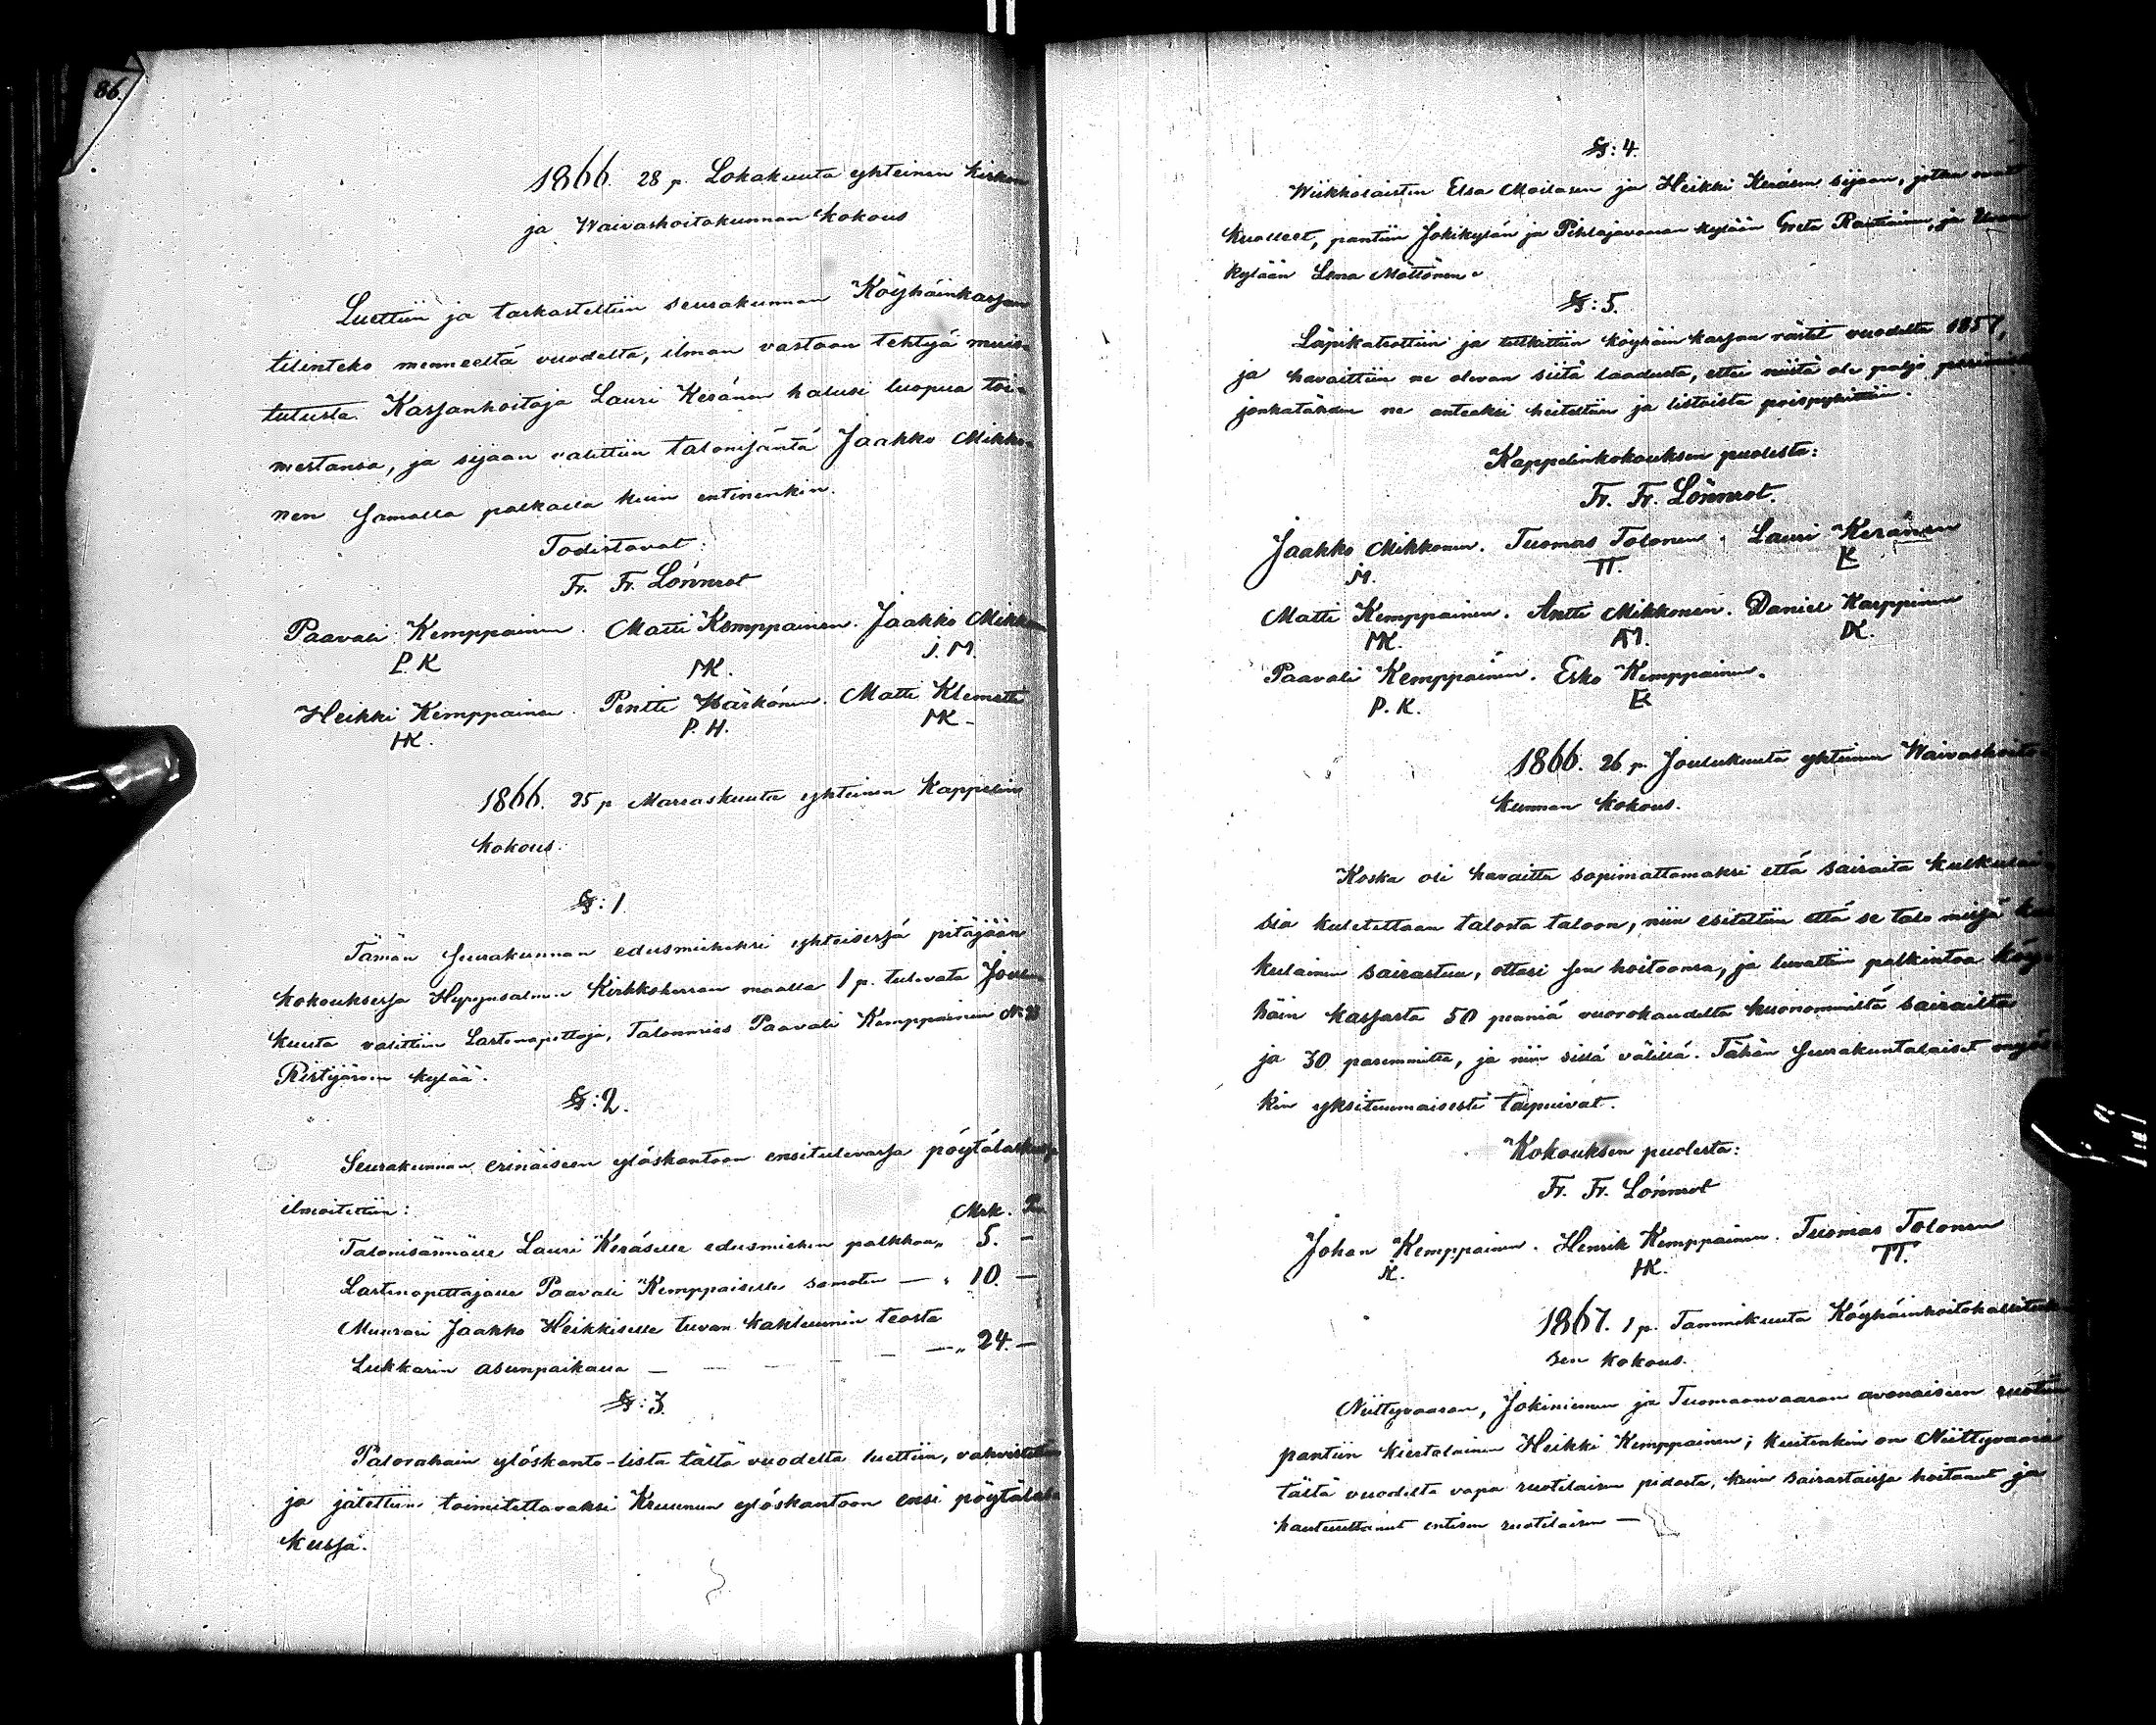 86.
1866. 28 p. Lokakuuta yhteinen Kirkon
ja Waivashoitokunnan Kokous
Luettiin ja tarkasteltiin seurakunnan Köyhäinkassan
tilinteko menneeltä vuodelta, ilman vastaan tehtyä muis-
tutusta. Kassanhoitaja Lauri Keränen halusi luopua toi-
mestansa, ja sijaan valittiin talonisäntä Jaakko Mikko-
nen samalla palkalla kuin entinenkin.
Todistavat:
Fr. Fr. Lönnrot
Paavali Kemppainen. Matti Kemppainen. Jaakko Mikkonen
P. K MK. J. M.
Heikki Kemppainen. Pentti Härkönen. Matti Klemetti
HK. P. H. MK.
1866. 25 p Marraskuuta yhteinen Kappelin
kokous.
§: 1.
Tämän seurakunnan edusmieheksi yhteisessä pitäjään
kokouksessa Hyrynsalmen Kirkkoherran maalla 1 p. tulevata Joulu-
kuuta valittiin Lastenopettaja, Talonmies Paavali Kemppainen No 23
Ristijärven kylää.
§: 2.
Seurakunnan erinäiseen ylöskantoon ensitulevassa pöytälaskussa
ilmoitettiin: Mrk. Pn.
Talonisännälle Lauri Keräselle edusmiehen palkkaa „ 5. —
Lastenopettajalle Paavali Kemppaiselle samoten — „ 10. —
Muurari Jaakko Heikkiselle tuvan kakluunin teosta
Lukkarin asunpaikalla — — — — — — „ 24. —
§: 3.
Palorahain ylöskanto-lista tältä vuodelta luettiin, vahvistettiin
ja jätettiin toimitettavaksi Kruunun ylöskantoon ensi pöytälas-
kussa.
§: 4.
Wiikkolaisten Elsa Moilasen ja Heikki Keräsen sijaan, jotka ovat
kuolleet, pantiin Jokikylän ja Pihlajavaaran kylään Greta Rautiainen, ja
kylään Lena Möttönen.
§: 5.
Läpikatsottiin ja tutkittiin köyhäin kassan rästit vuodelta 1857,
ja havaittiin ne olevan siitä laadusta, ettei niitä ole paljo perimistä
jonkatähden ne anteeksi heitettiin ja listoista poispyhittiin.
Kappelinkokouksen puolesta:
Fr. Fr. Lönnrot.
Jaakko Mikkonen. Tuomas Tolonen. Lauri Keränen
JM. TT. K
Matti Kemppainen. Antti Mikkonen. Daniel Karppinen
MK. AM. DK.
Paavali Kemppainen. Esko Kemppainen.
P. K. EK
1866. 26 p. Joulukuuta yhteinen Waivashoito-
kunnan kokous.
Koska oli havaittu sopimattomaksi että sairaita kulkulai-
sia kuletettaan talosta taloon, niin esiteltiin että se talo missä kul-
kulainen sairastuu, ottasi sen hoitoonsa, ja luvattiin palkintoa köy-
häin kassasta 50 penniä vuorokaudelta huonommilta sairailta
ja 30 paremmilta, ja niin sillä välillä. Tähän seurakuntalaiset myös-
kin yksituumaisesti taipuivat.
Kokouksen puolesta:
Fr. Fr. Lönnrot
Johan Kemppainen. Henrik Kemppainen. Tuomas Tolonen
K. HK. TT.
1867. 1 p. Tammikuuta Köyhäinhoitohallituk-
sen kokous.
Niittyvaaran, Jokiniemen ja Tuomaanvaaran avonaiseen ruotiin
pantiin kiertolainen Heikki Kemppainen; kuitenkin on Niittyvaara
tältä vuodelta vapa ruotilaisen pidosta, kuin sairastaissa hoitanut ja
hautuuttanut entisen ruotilaisen —